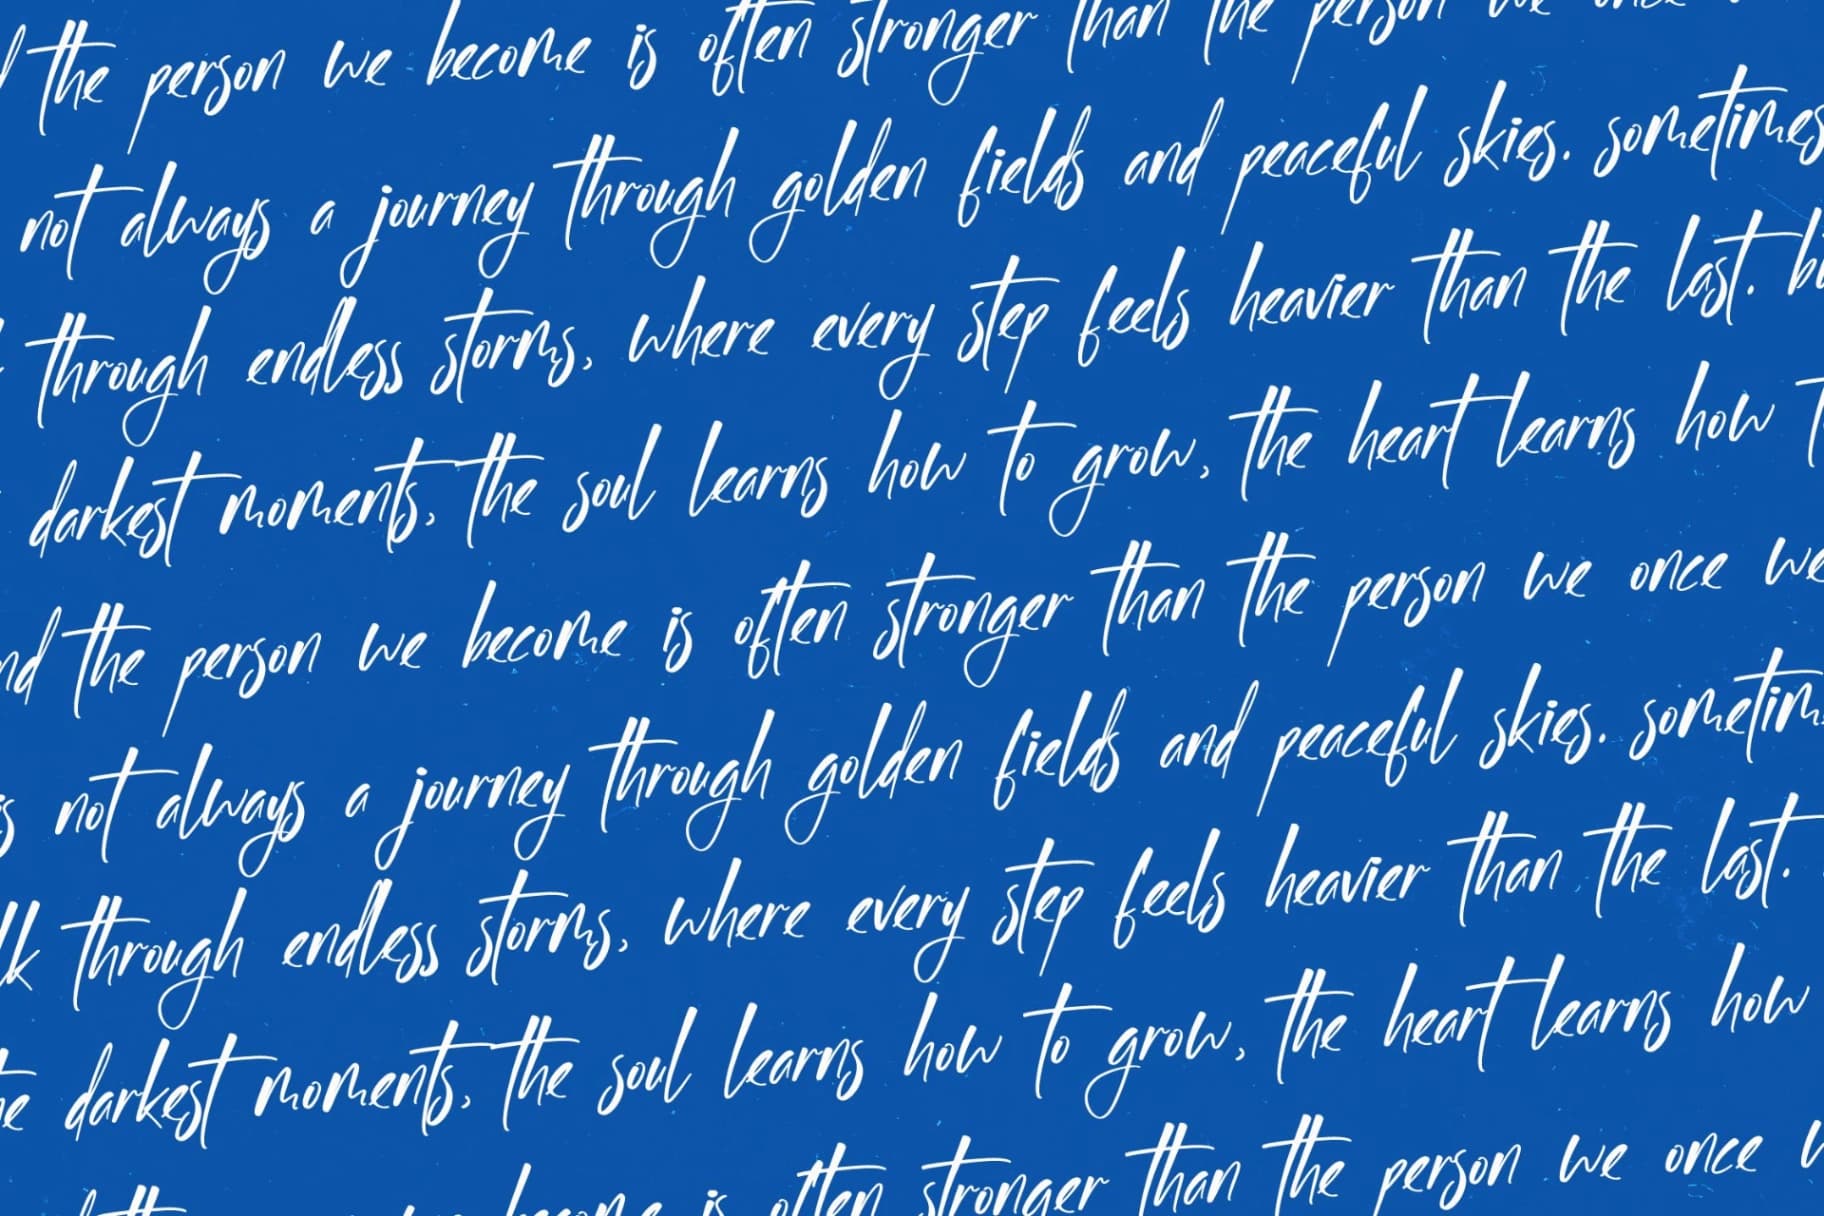 the person we become is often stronger than the person we once
not always a journey through golden fields and peaceful skies. sometimes
through endless storms, where every step feels heavier than the last.
darkest moments, the soul learns how to grow, the heart learns how
the person we become is often stronger than the person we once we
is not always a journey through golden fields and peaceful skies. sometim
lk through endless storms, where every step feels heavier than the last.
darkest moments, the soul learns how to grow, the heart learns how
become is often stronger than the person we once